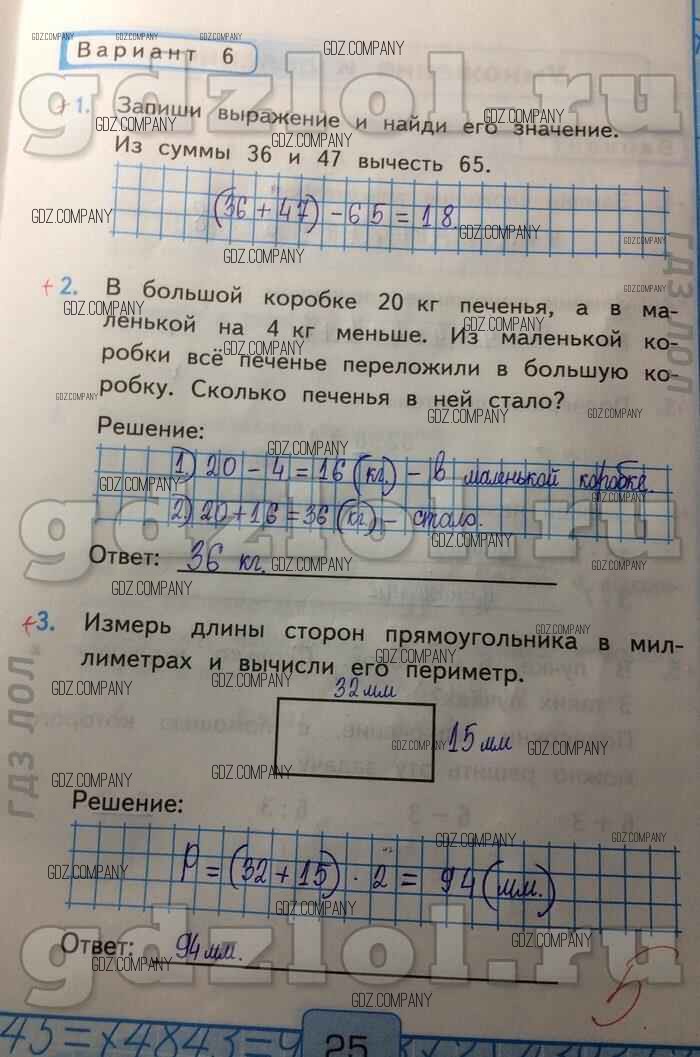 Вариант 6
+ 1. Запиши выражение и найди его значение.
Из суммы 36 и 47 вычесть 65.
(36 + 47) - 65 = 18.
+ 2. В большой коробке 20 кг печенья, а в ма-
ленькой на 4 кг меньше. Из маленькой ко-
робки всё печенье переложили в большую ко-
робку. Сколько печенья в ней стало?
Решение:
1) 20 - 4 = 16 (кг.) - в маленькой коробке.
2) 20 + 16 = 36 (кг) - стало.
Ответ: 36 кг.
+ 3. Измерь длины сторон прямоугольника в мил-
лиметрах и вычисли его периметр.
32 мм
15 мм
Решение:
P = (32 + 15) · 2 = 94 (мм.)
Ответ: 94 мм.
5
25
gdzlol.ru
ГДЗ ЛОЛ
GDZ.COMPANY